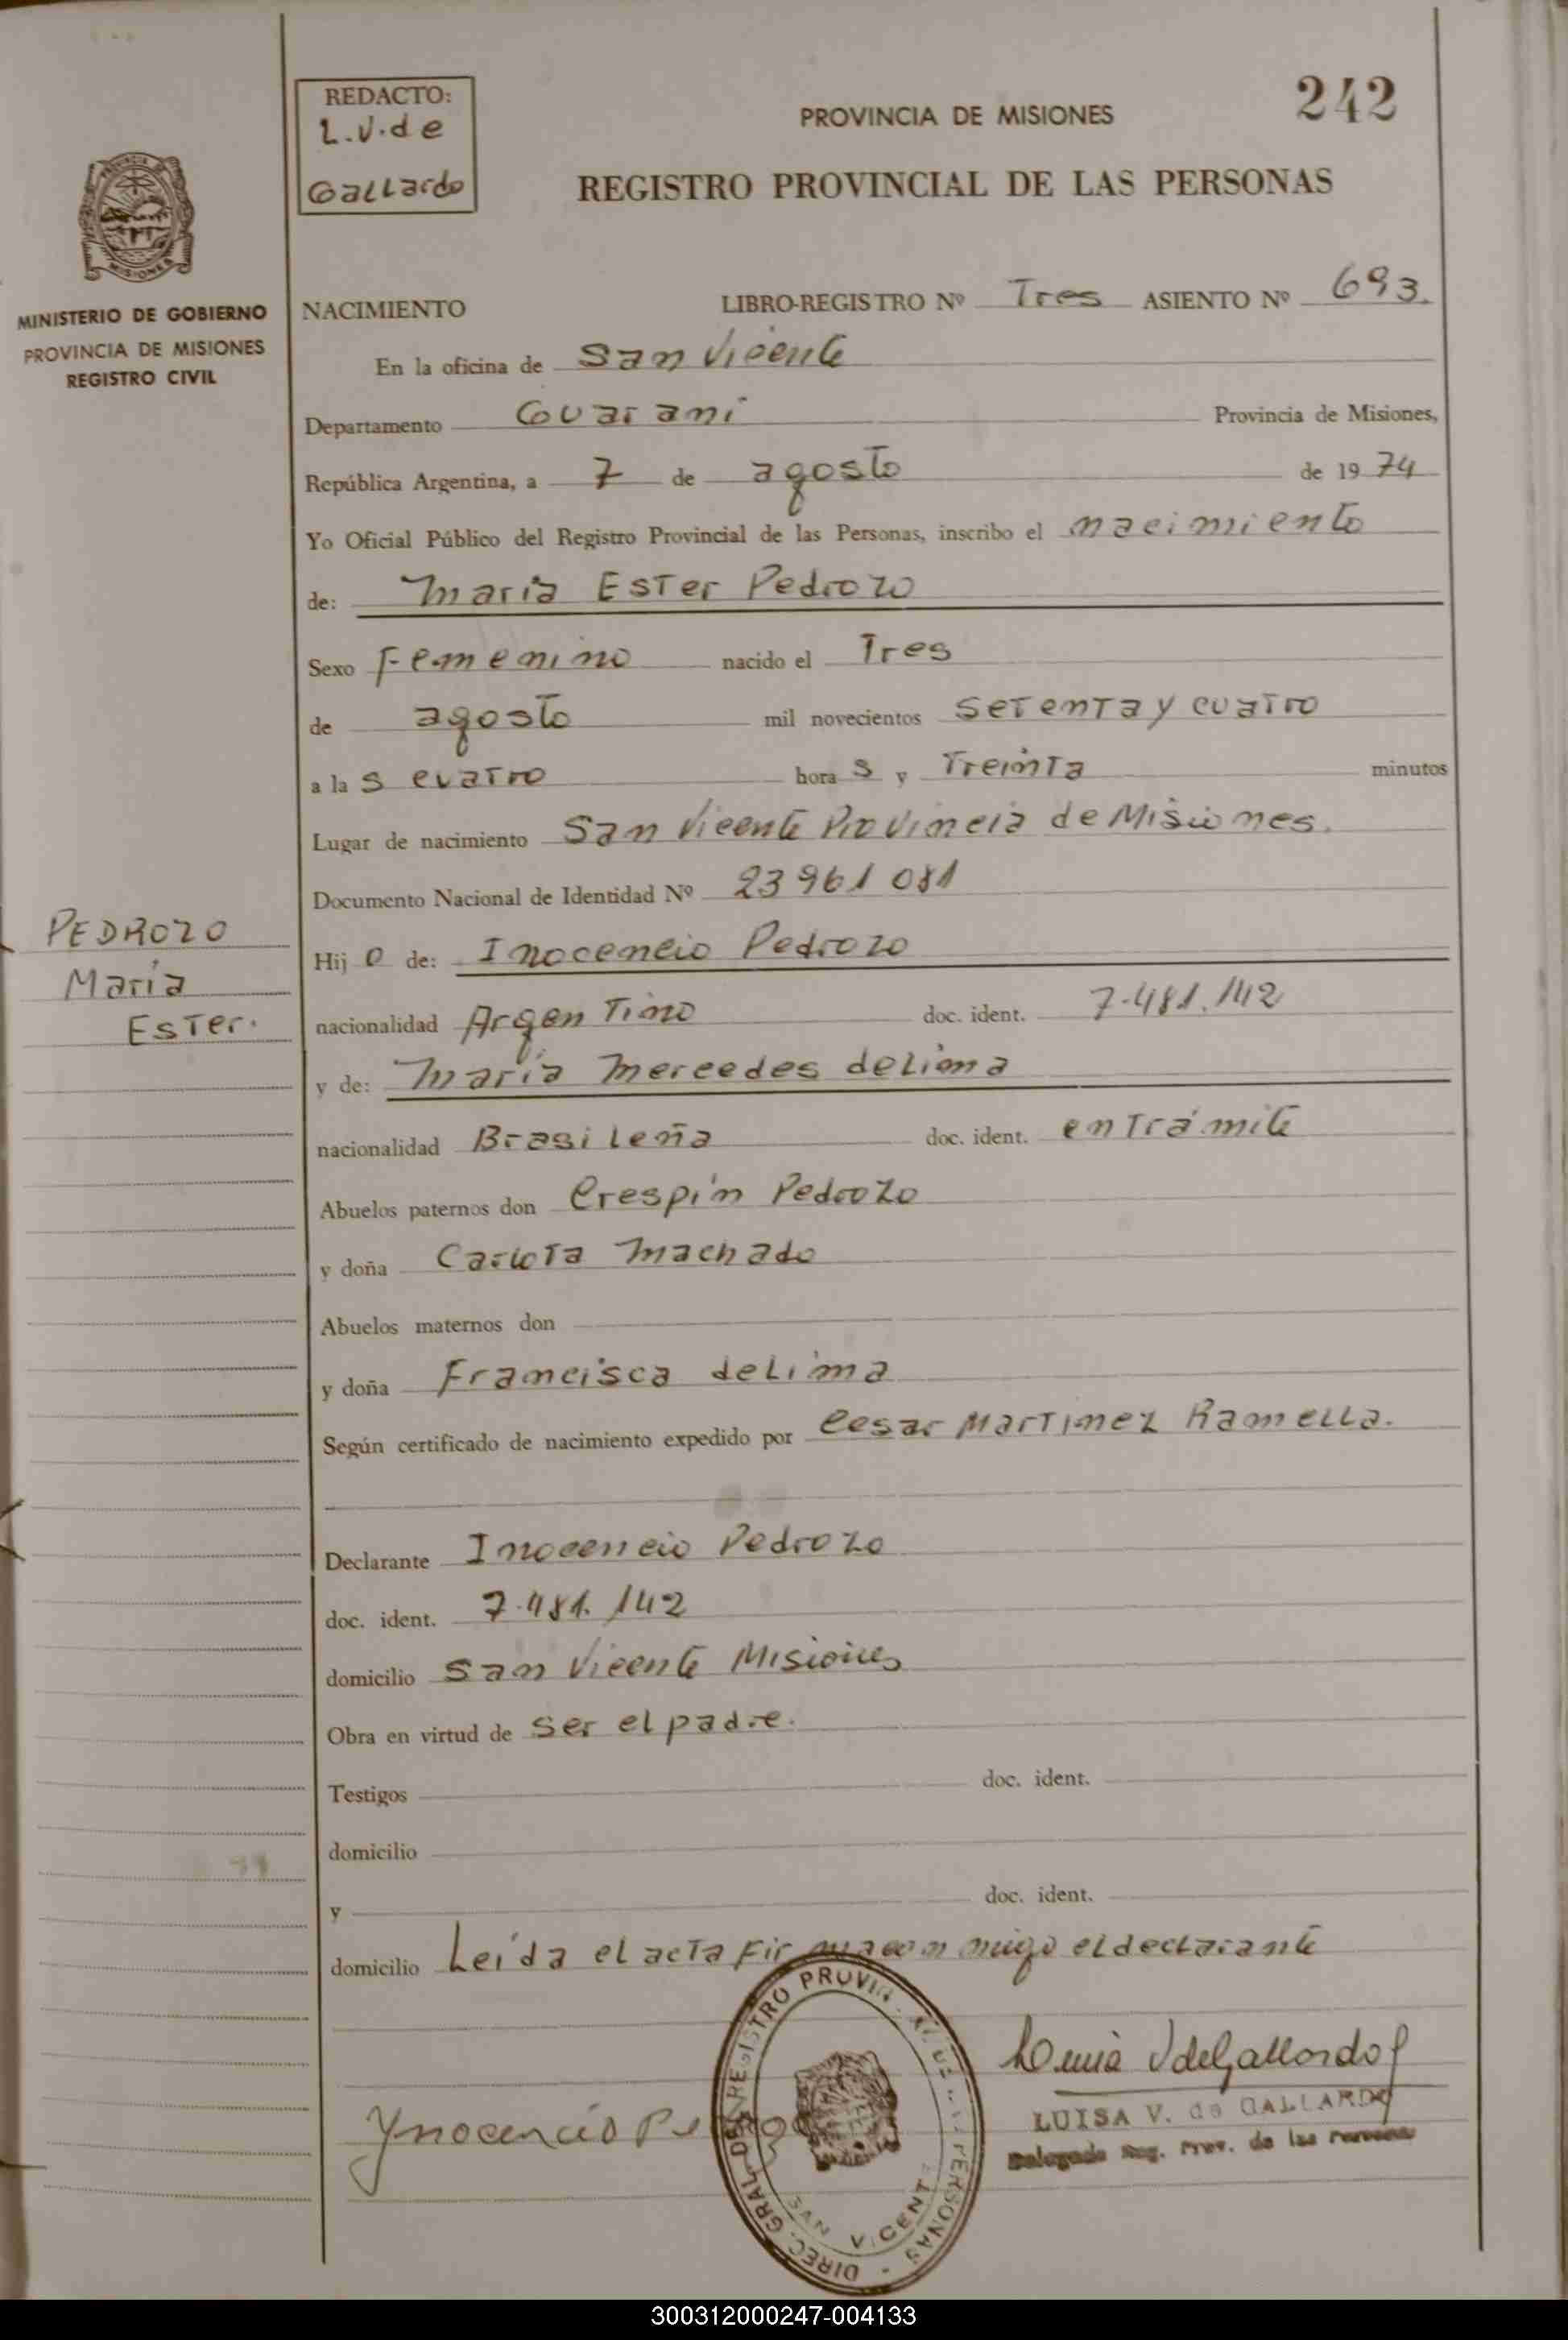 242
REDACTO:
L.V.de
Gallardo
PROVINCIA DE MISIONES
REGISTRO PROVINCIAL DE LAS PERSONAS
MISIONES
MINISTERIO DE GOBIERNO
PROVINCIA DE MISIONES
REGISTRO CIVIL
NACIMIENTO LIBRO-REGISTRO Nº Tres ASIENTO Nº 693.
En la oficina de San Vicente
Departamento Guaraní Provincia de Misiones,
República Argentina, a 7 de agosto de 1974
Yo Oficial Público del Registro Provincial de las Personas, inscribo el nacimiento
de: María Ester Pedrozo
Sexo Femenino nacido el Tres
de agosto mil novecientos setenta y cuatro
a las cuatro horas y Treinta minutos
Lugar de nacimiento San Vicente Provincia de Misiones.
Documento Nacional de Identidad Nº 23961081
PEDROZO
María
Ester.
Hijo de: Inocencio Pedrozo
nacionalidad Argentino doc. ident. 7.481.142
y de: María Mercedes deLima
nacionalidad Brasileña doc. ident. en trámite
Abuelos paternos don Crespín Pedrozo
y doña Carlota Machado
Abuelos maternos don
y doña Francisca deLima
Según certificado de nacimiento expedido por Cesar Martinez Ramella.
Declarante Inocencio Pedrozo
doc. ident. 7.481.142
domicilio San Vicente Misiones
Obra en virtud de ser el padre.
Testigos doc. ident.
domicilio
y doc. ident.
domicilio Leída el acta firma conmigo el declarante
Luisa V de Gallardo
LUISA V. de GALLARDO
Delegada Reg. Prov. de las Personas
Ynocencio
DIREC. GRAL. DEL REGISTRO PROVIN. DE LAS PERSONAS
SAN VICENTE
300312000247-004133